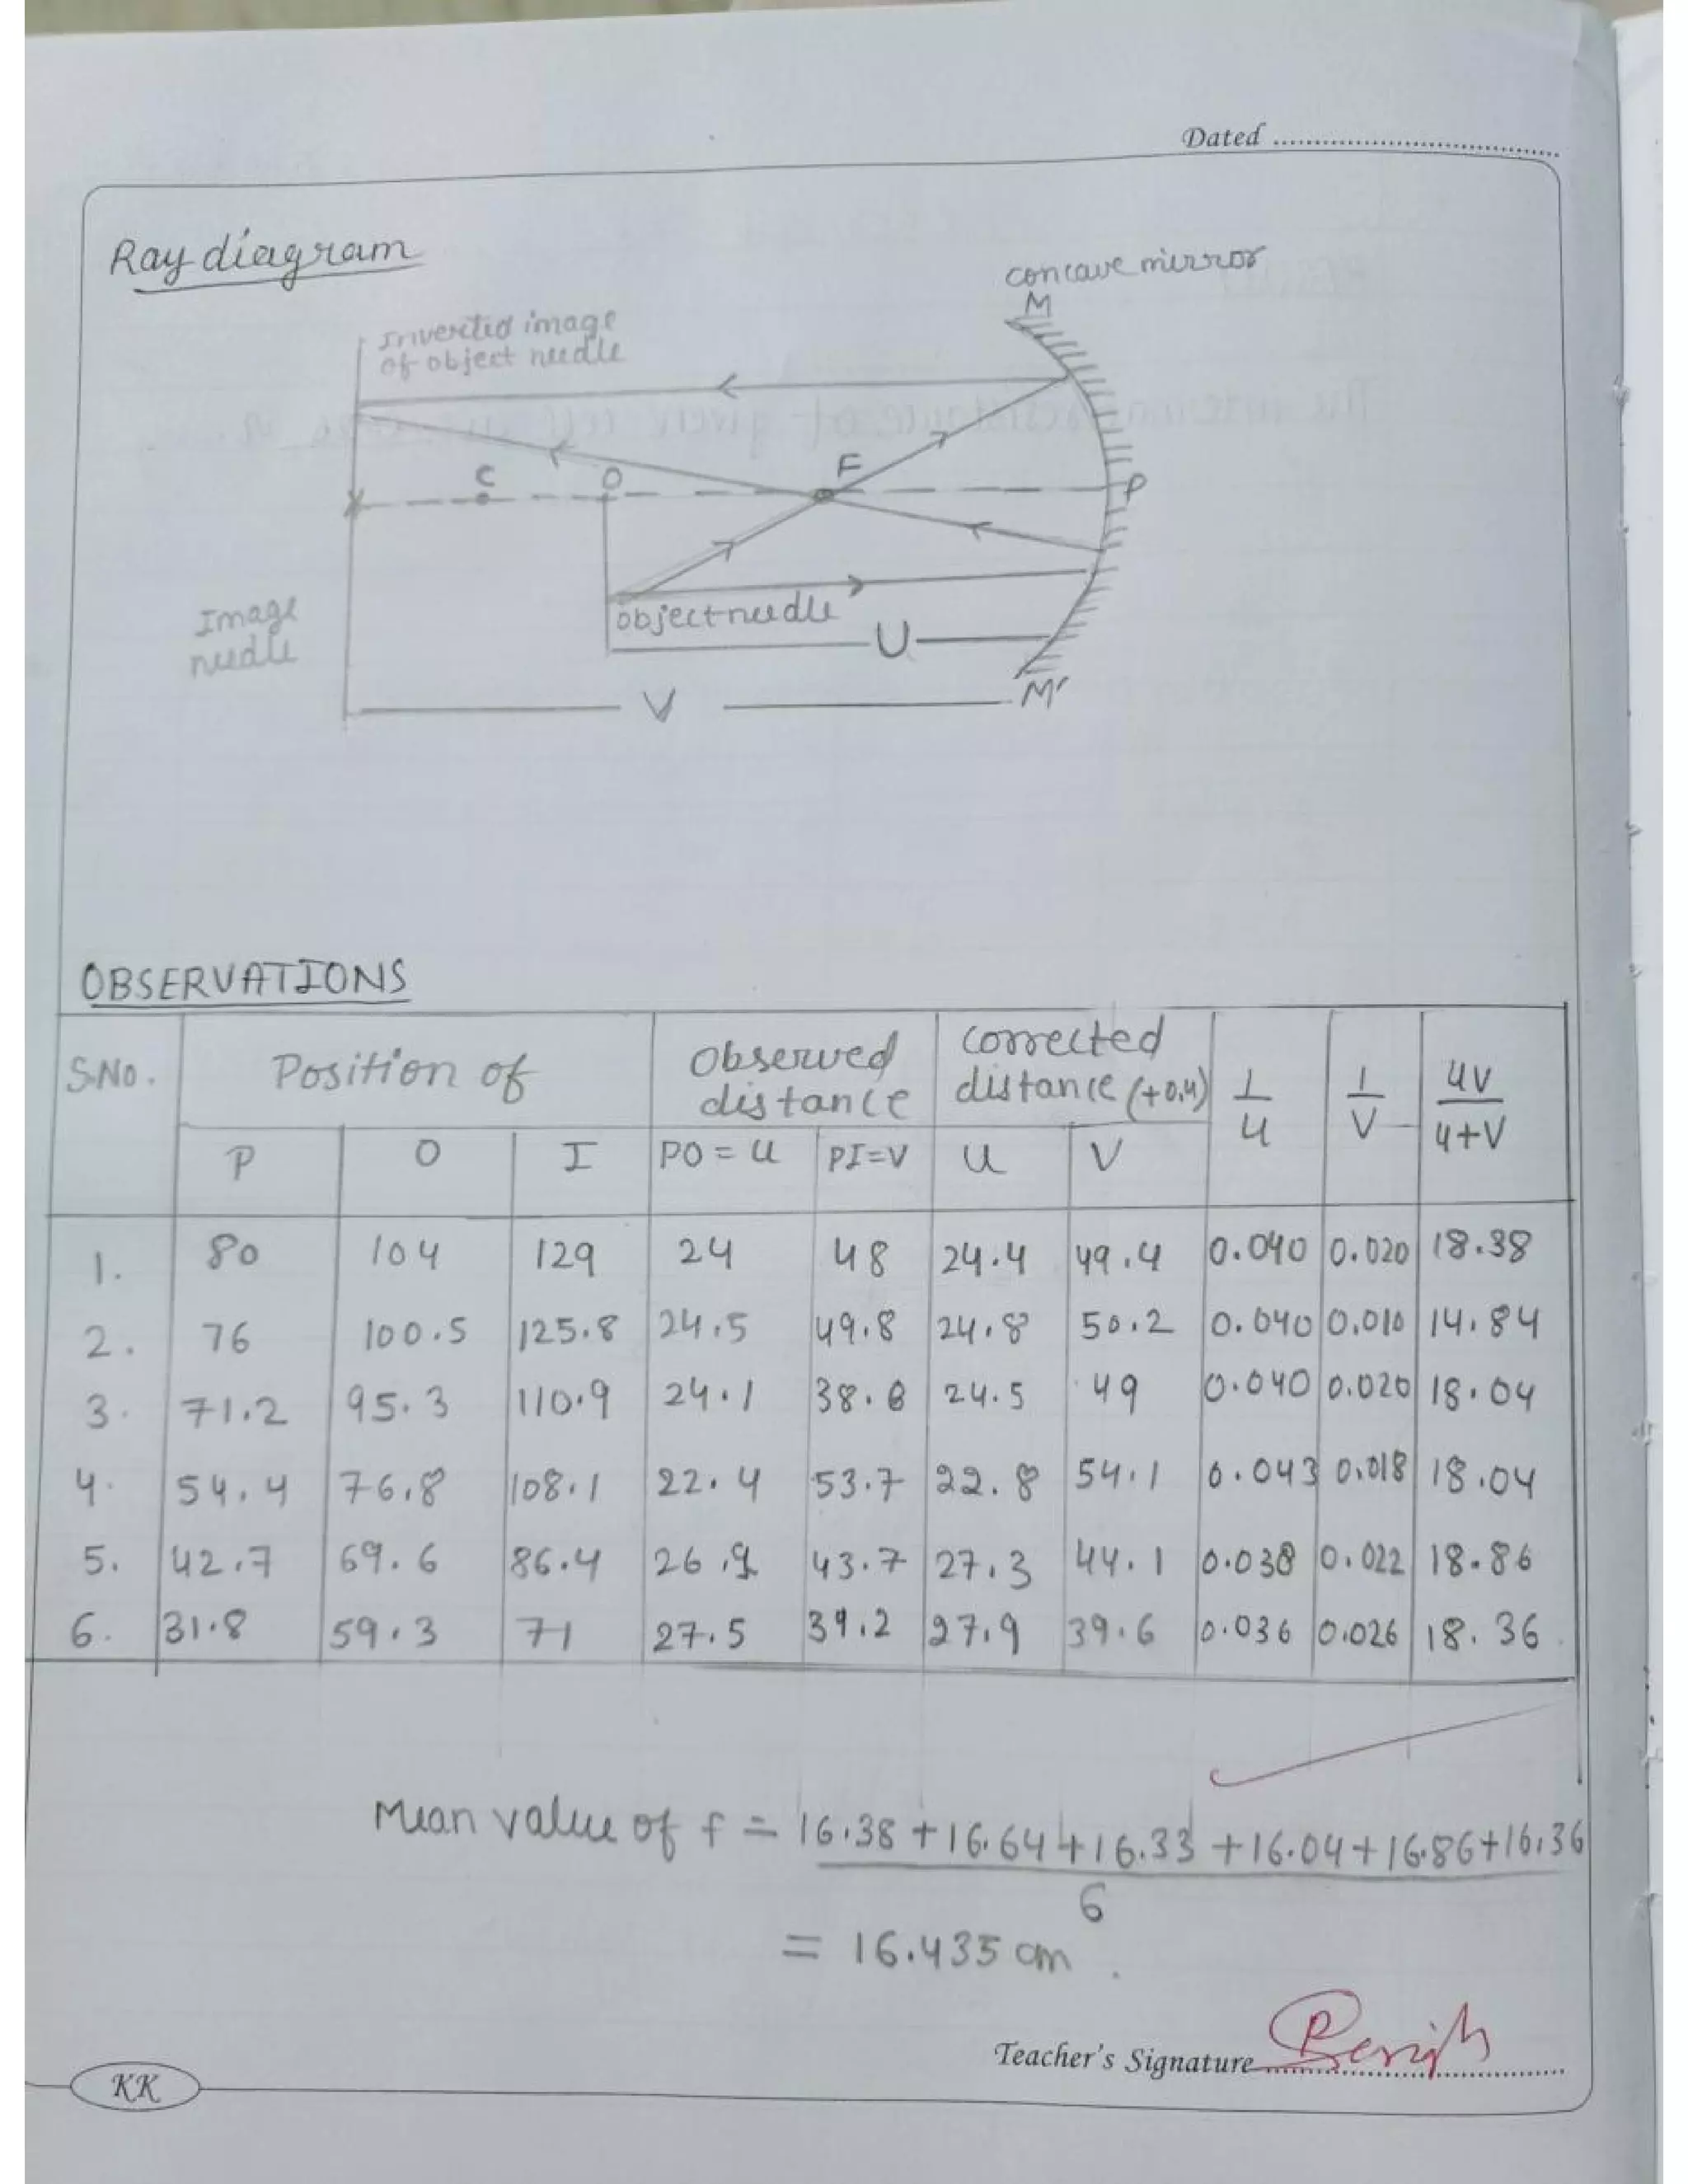 Dated
Ray diagram
concave mirror
M
Inverted image
of object needle
C O F P
object needle
Image
needle
U
V
M'
OBSERVATIONS
S.No. Position of Observed distance Corrected distance (+0.4) 1/u 1/v uv/u+v
P O I PO = u PI=v u v
1. 80 104 129 24 48 24.4 49.4 0.040 0.020 18.38
2. 76 100.5 125.8 24.5 49.8 24.8 50.2 0.040 0.010 14.84
3. 71.2 95.3 110.9 24.1 38.6 24.5 49 0.040 0.020 18.04
4. 54.4 76.8 108.1 22.4 53.7 22.8 54.1 0.043 0.018 18.04
5. 42.7 69.6 86.4 26.9 43.7 27.3 44.1 0.038 0.022 18.86
6. 31.8 59.3 71 27.5 39.2 27.9 39.6 0.036 0.026 18.36
Mean value of f = 16.38+16.64+16.33+16.04+16.86+16.36
6
= 16.435 cm.
Teacher's Signature
KK